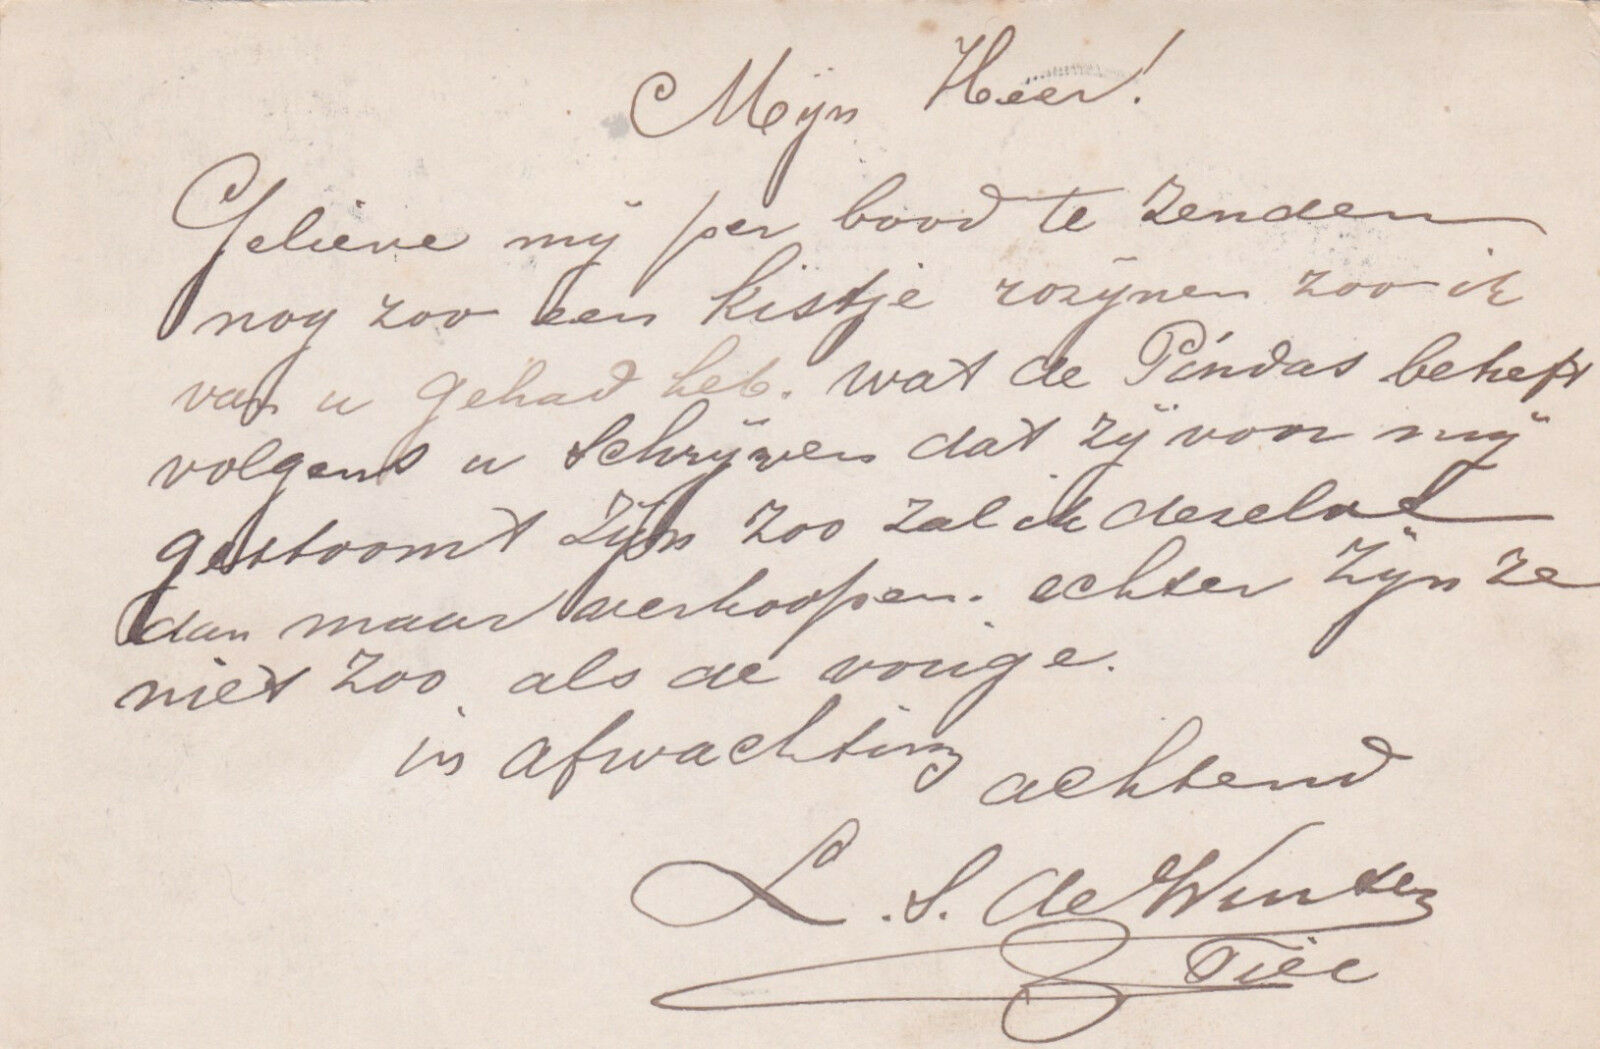 Mijn Heer!
Gelieve mij per bood te zenden
nog zoo een kistje rozijnen zoo ik
van u gehad heb. wat de Pindas betreft
volgens u schrijven dat zij voor mij
gestoomt zijn zoo zal ik deselve
dan maar verkoopen. echter zijn ze
niet zoo als de vorige.
in afwachting
achtend
L. S. de Winter
Tiel